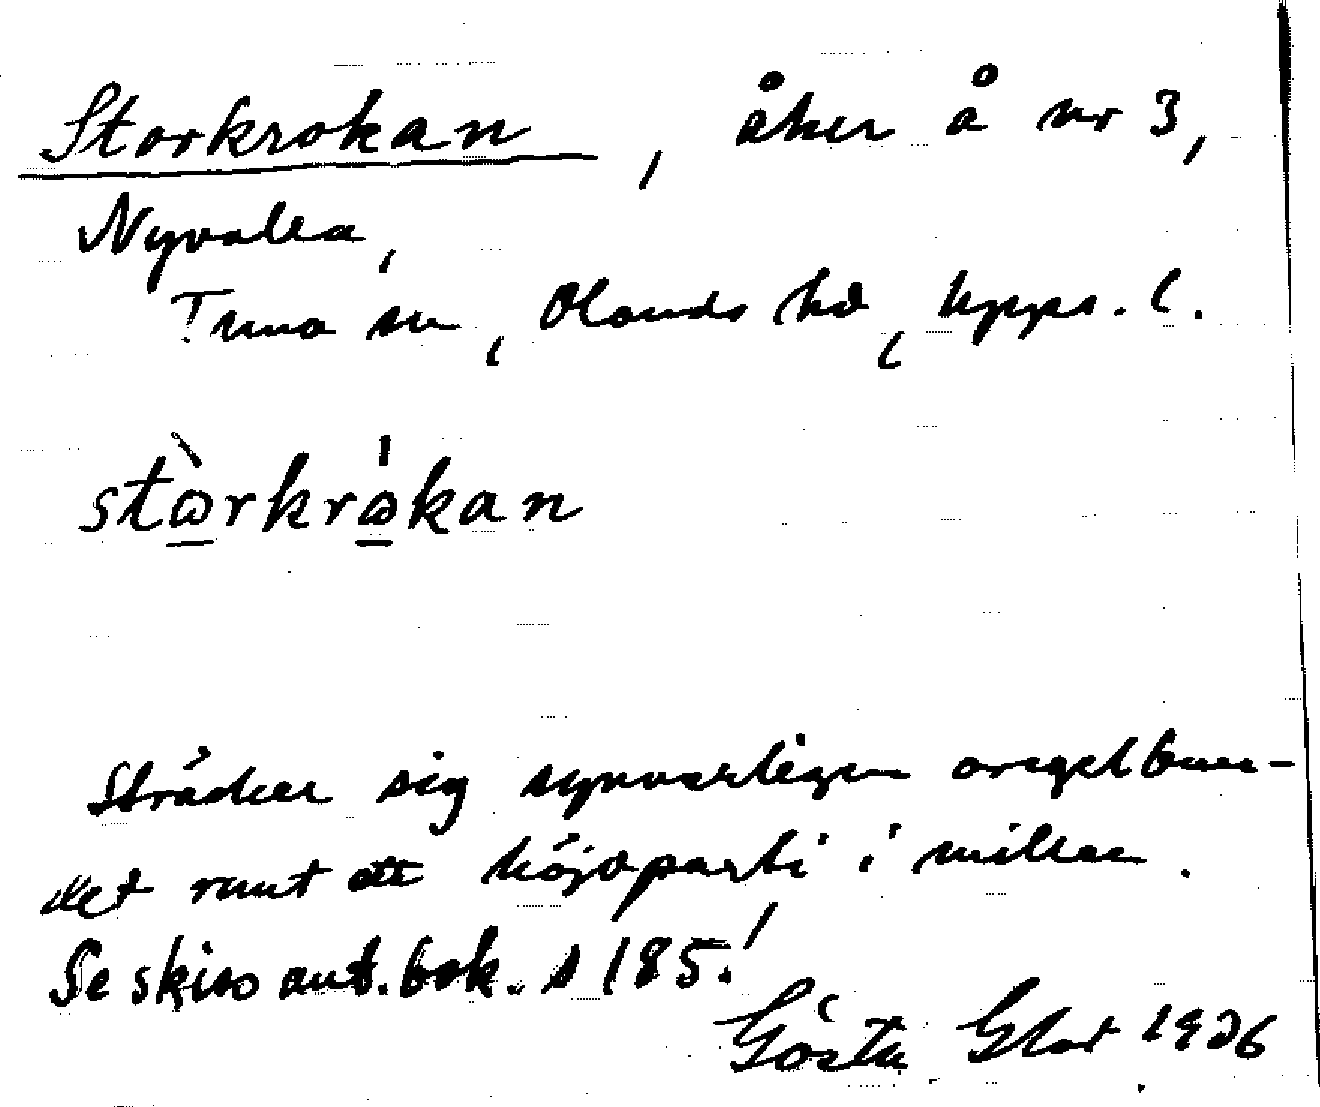 Storkrokan, åker å nr 3,
Nyvalla,
Tuna sn, Olands hd, Upps. l.
stòrkrókan
Sträcker sig synnerligen oregelbun-
det runt ett höjdparti i mitten.
Se skiss ant.bok. s 185!
Gösta 1926